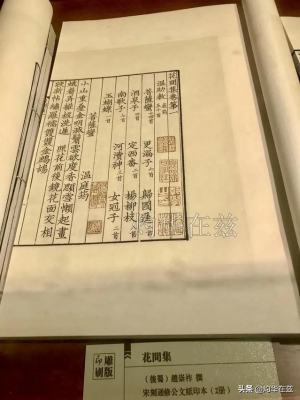 花間集卷第一
溫助教
菩薩蠻 更漏子 歸國遙
酒泉子 定西番 楊柳枝
南歌子 河瀆神 女冠子
玉蝴蝶
菩薩蠻 溫庭筠
小山重疊金明滅鬢雲欲度香顋雪懶起畫
蛾眉弄粧梳洗遲 照花前後鏡花面交相
映新帖繡羅襦雙雙金鷓鴣
在兹
雕版
印刷
花間集
（後蜀）趙崇祚 撰
宋刻遞修公文紙印本（2册）
头条 @灼华在兹